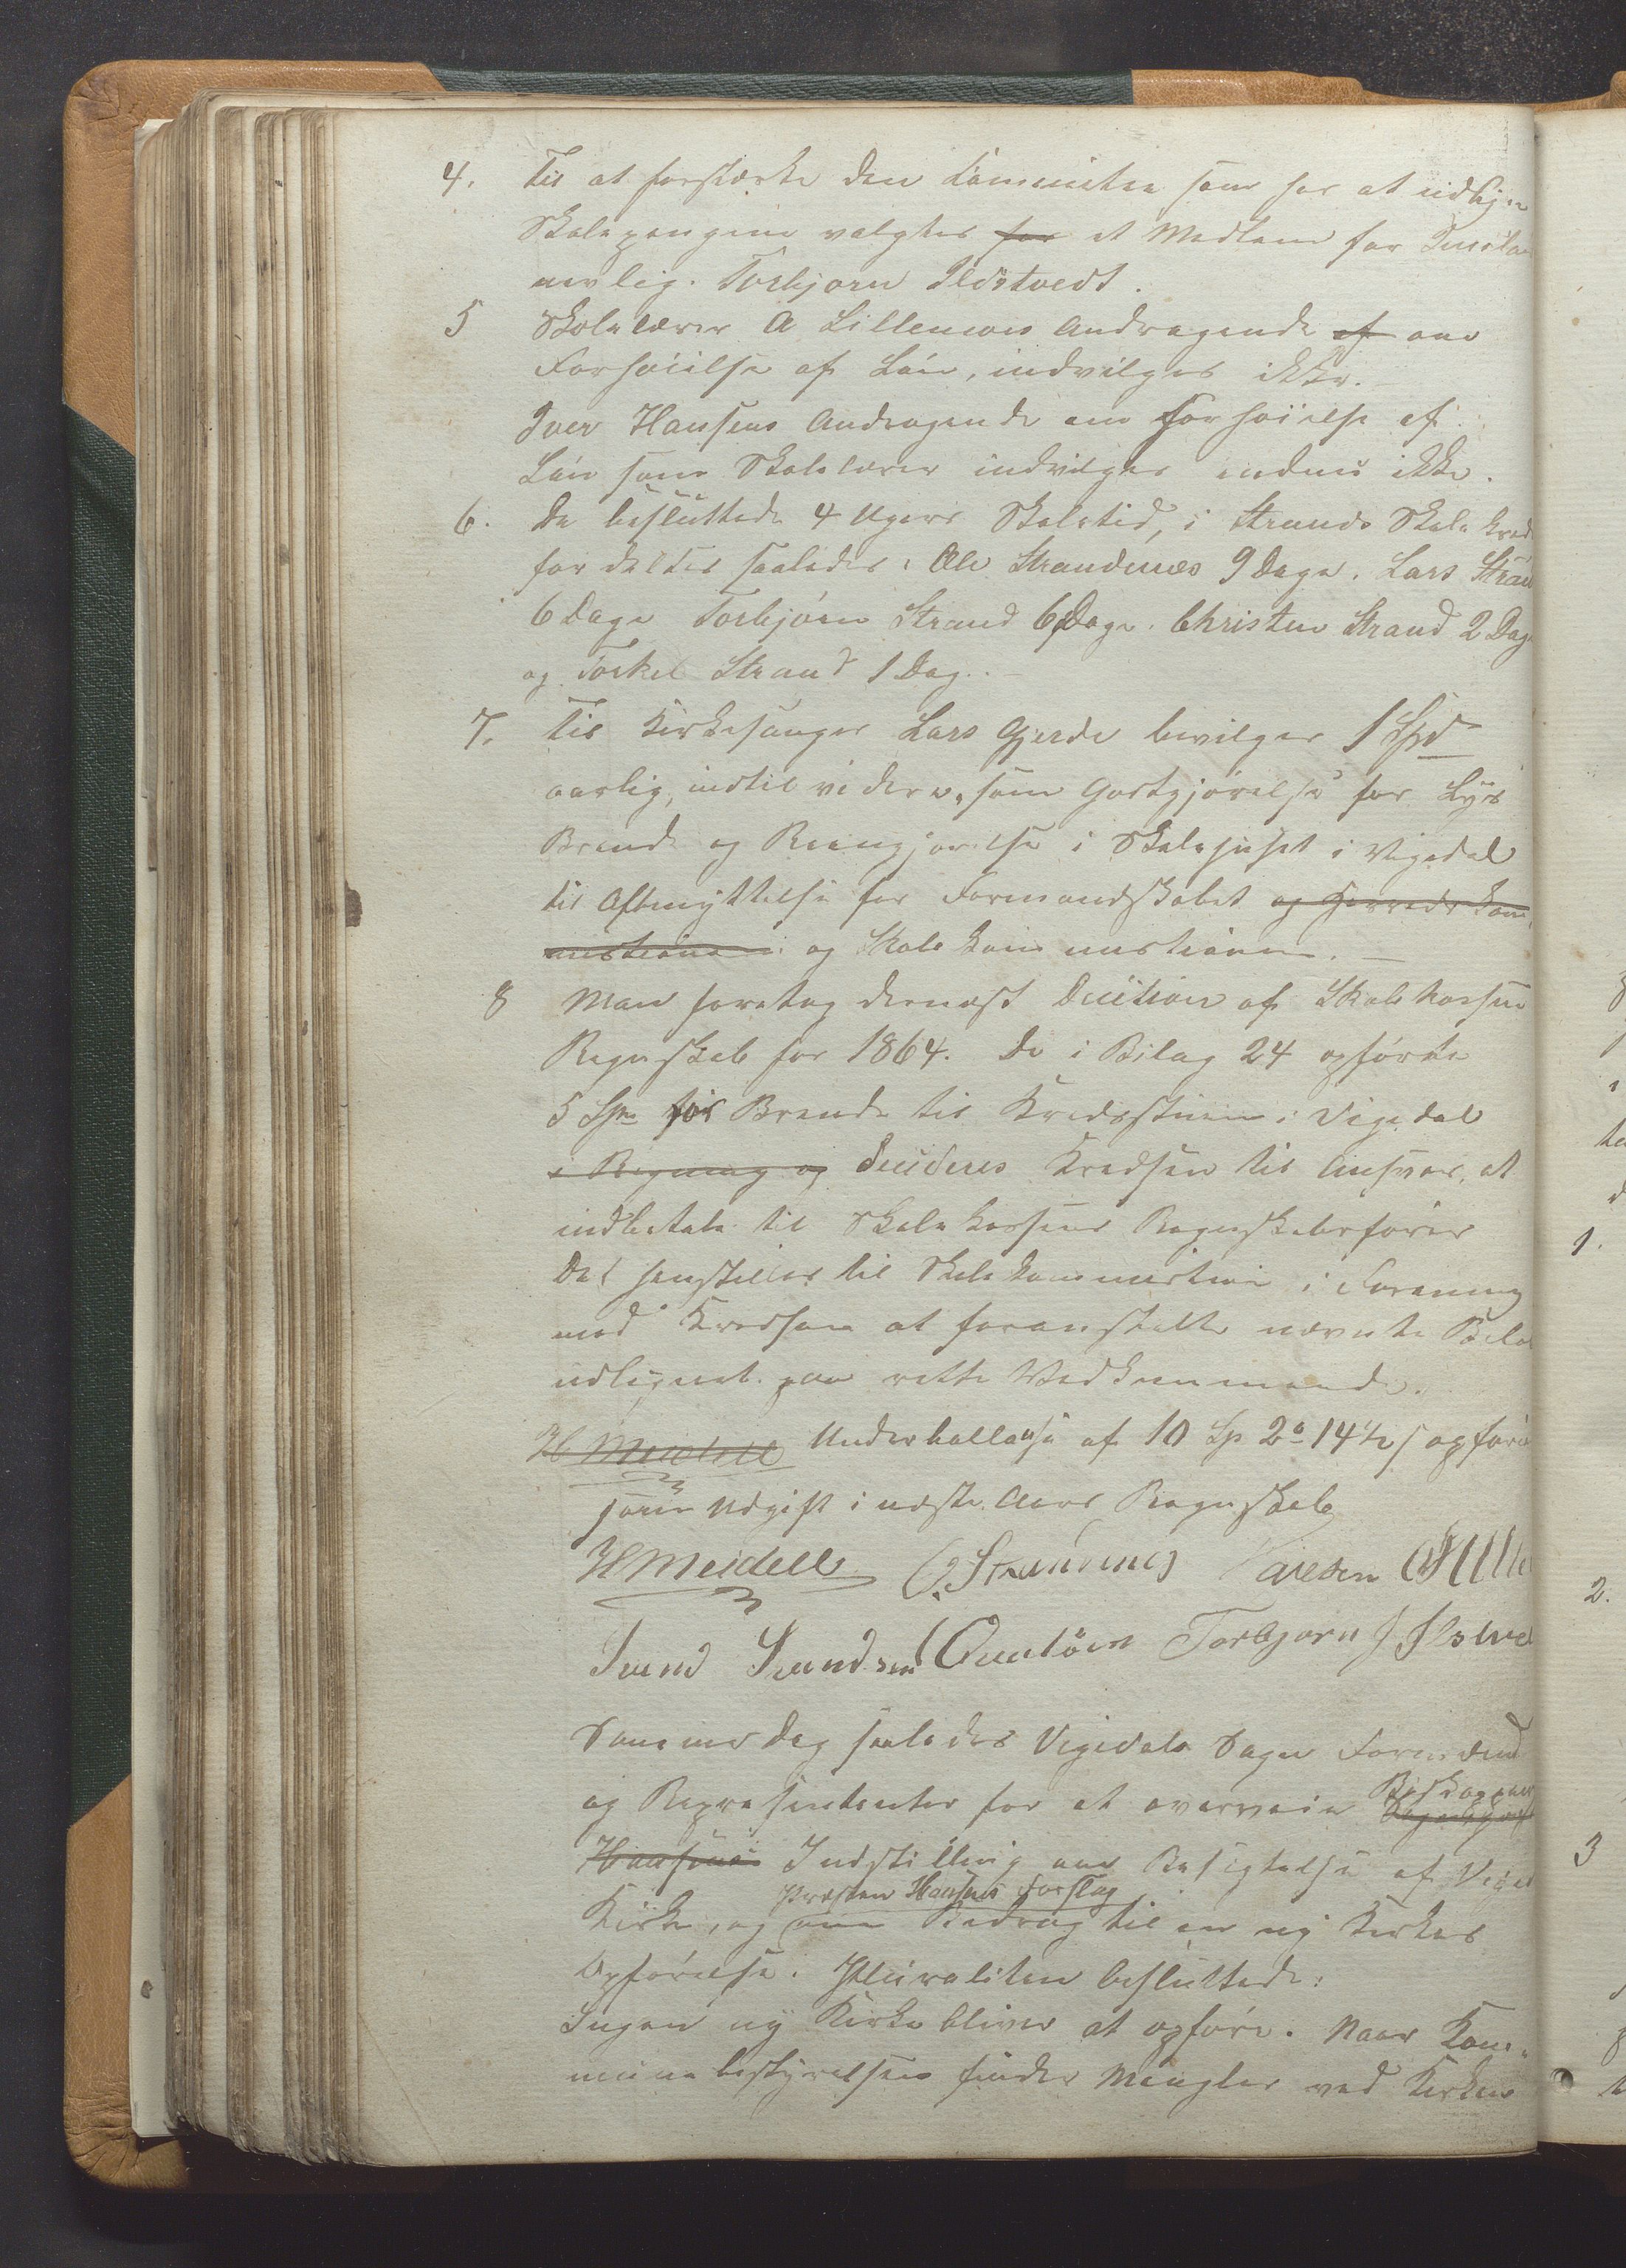 4. Til at forstærke den Committee som har at udligne
Skolepengene valgtes for et Medlem for
nemlig. Torbjørn Ilstvedt.
5 Skolelærer A Lillenæs Andragende af om
Forhøielse af Løn, indvilges ikke.
Iver Hansens Andragende om Forhøielse af
Løn som Skolelærer indvilges endnu ikke.
6. De besluttede 4 Ugers Skoletid, i Strands Skolekreds
fordeltes saaledes: Ole Strandenæs 9 Dage. Lars Strand
6 Dage Torbjørn Strand 6 Dage. Christen Strand 2 Dage
og Torkel Strand 1 Dag.
7. Til Kirkesanger Lars Gjerde bevilges 1 Spd
aarlig, indtil videre, som Godtgjørelse for Lys
Brænde og Reengjørelse i Skolehuset i Vigedal
til Afbenyttelse for Formandskabet og Herredskom
missionen og Skolekommissionen.
8 Man foretog dernæst Decition af Skolekassens
Regnskab for 1864. De i Bilag 24 opførte
5 Spd for Brænde til Kredsstuen i Vigedal
i Regning og decideres Kredsen til Ansvar, at
indbetale til Skolekassens Regnskabsfører
Det henstilles til Skolekommissionen i Forening
med Kredsen at foranstalte nævnte Beløb
udlignet paa rette Vedkommende.
H Meidell Underballance af 10 Sp 2o 14½ s opføres
som Udgift i næste Aars Regnskab
H Meidell O. Strandenæs Larsen
Svend Svendsen Qualøen Torbjørn J Ilstved
Samme Dag samledes Vigedals Sogns Formænd
og Repræsentanter for at overveie Biskoppens
Hansens Indstilling om Besigtelse af Vigedals
Præsten Hansens Forslag
Kirke, og om Bidrag til en ny Kirkes
Opførelse. Pluraliteten besluttede:
Ingen ny Kirke bliver at opføre. Naar Kom-
munebestyrelsen finder Mangler ved Kirken